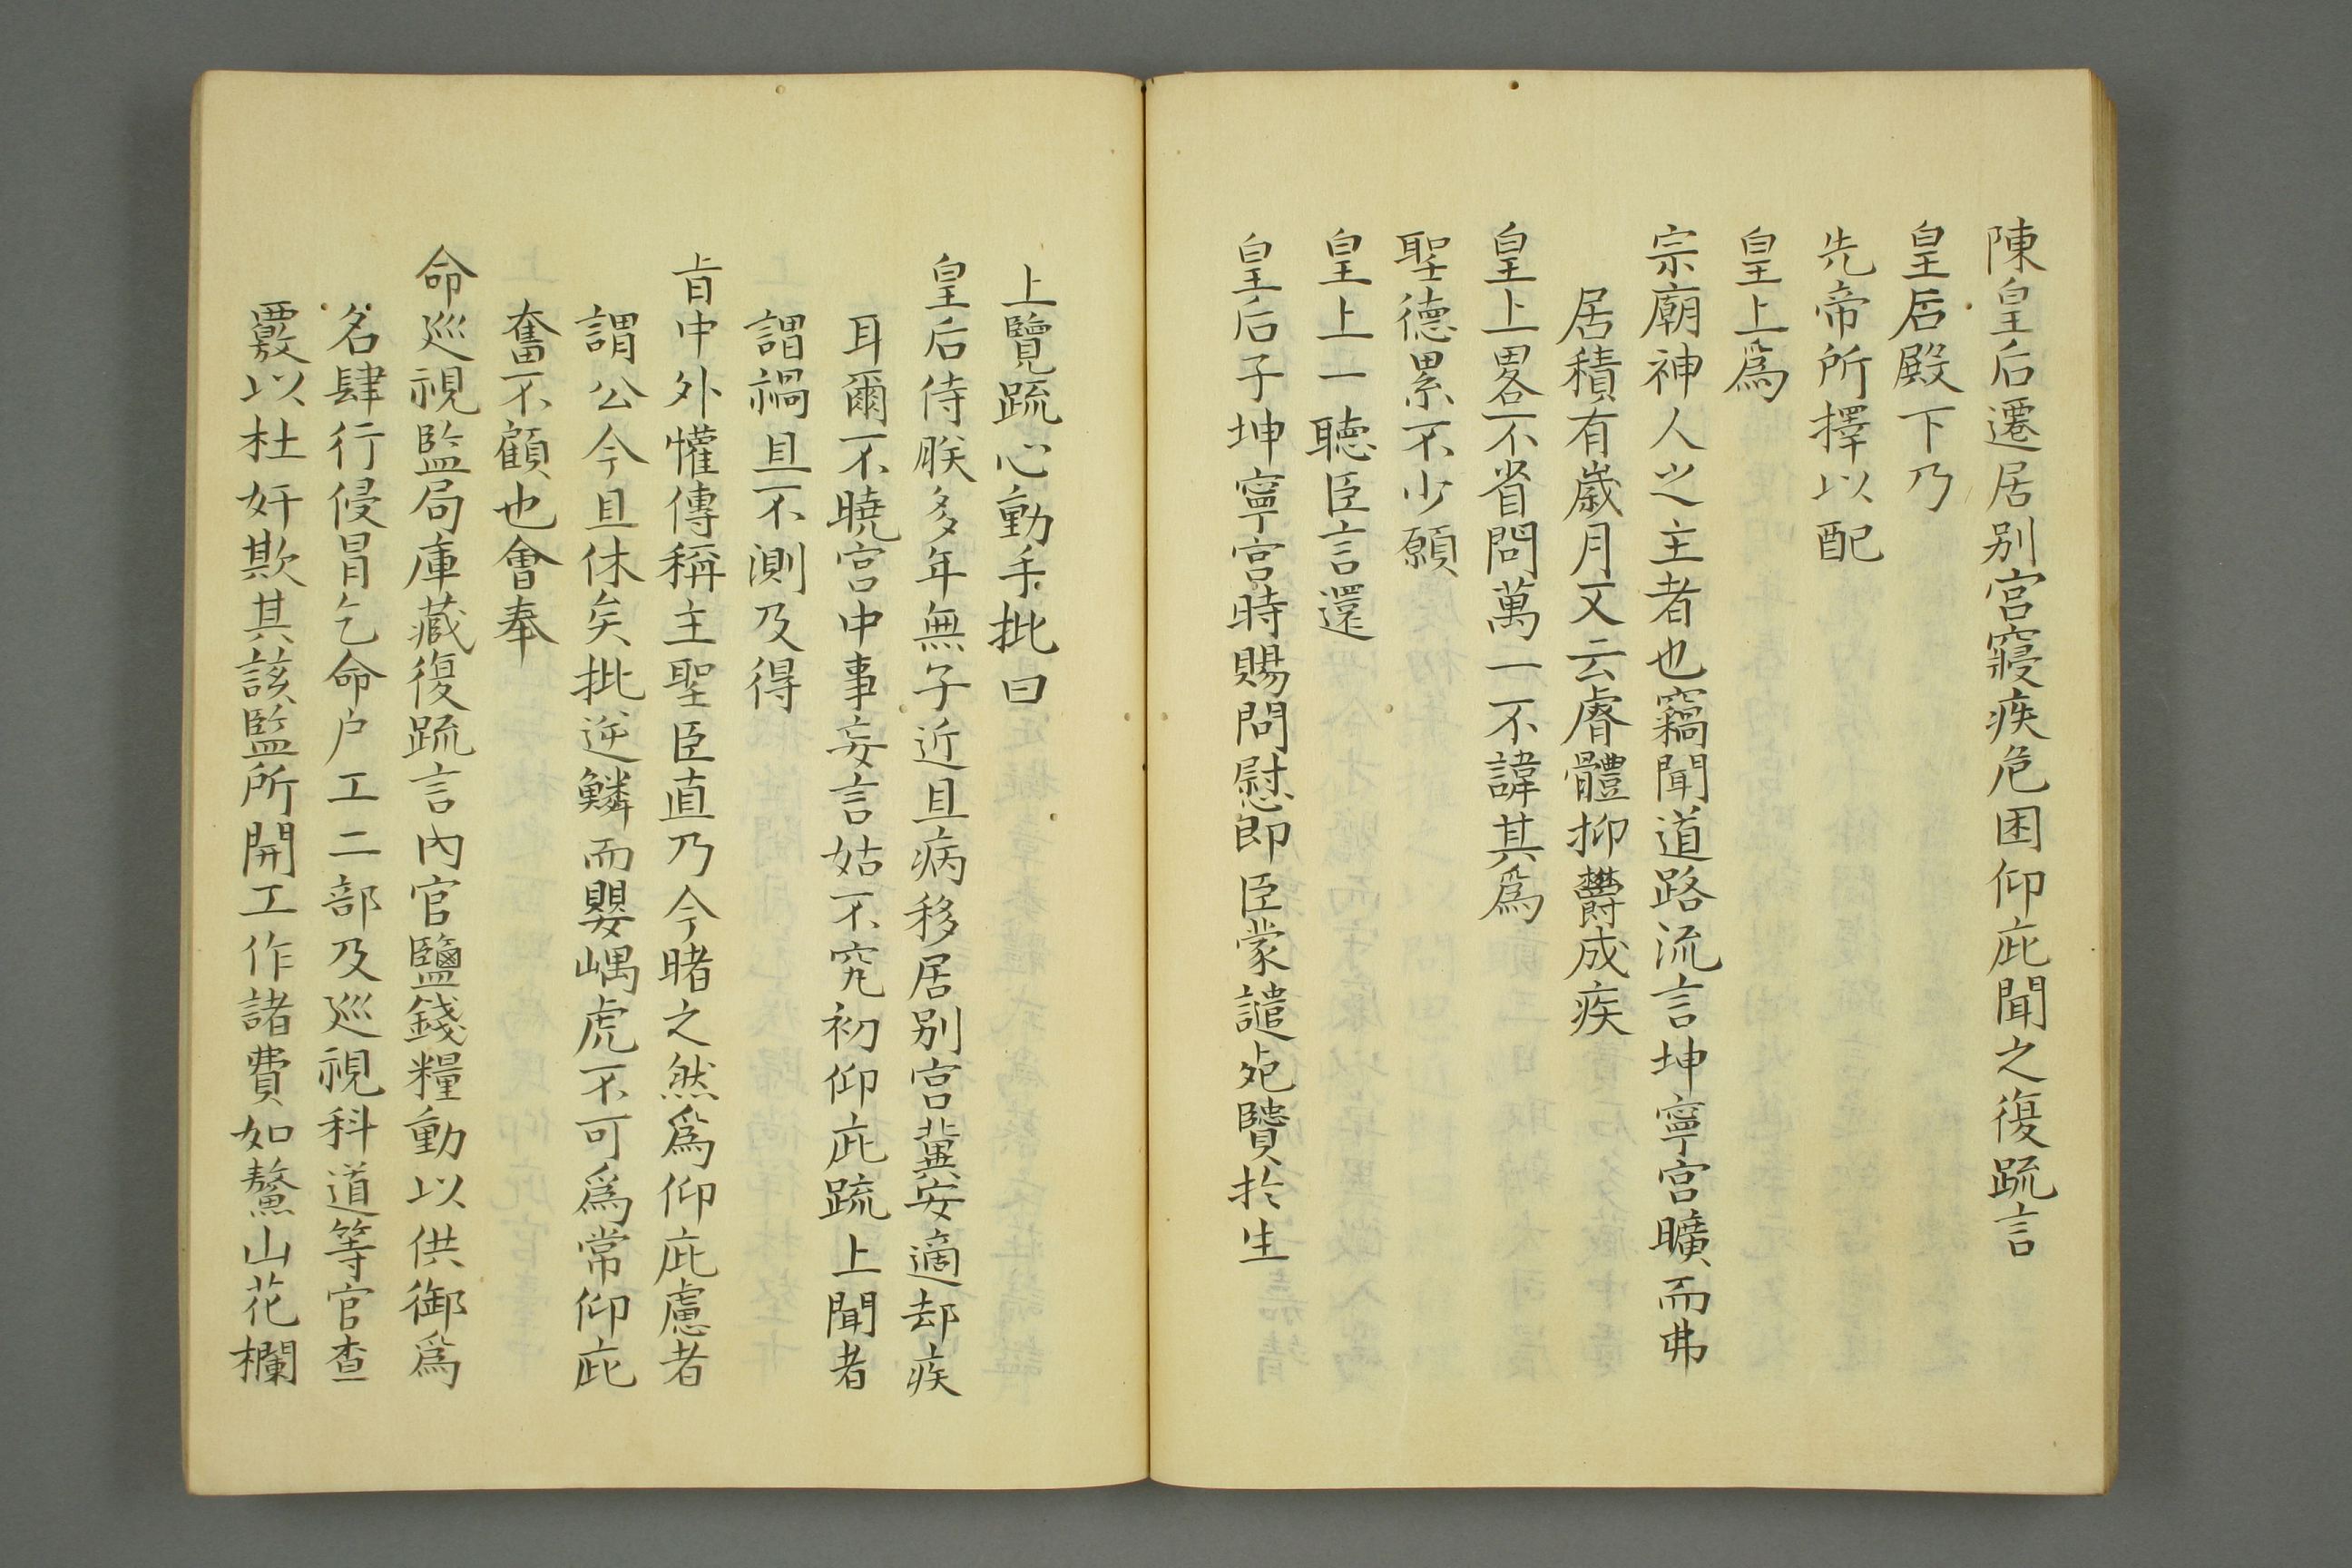 陳皇后遷居别宫寢疾危困仰庇聞之復䟽言
皇后殿下乃
先帝所擇以配
皇上爲
宗廟神人之主者也竊聞道路流言坤寧宫曠而弗
居積有歲月又云睿體抑欝成疾
皇上畧不省問萬一不諱其爲
聖德累不少願
皇上一聽臣言還
皇后于坤寧宫時賜問慰即臣蒙譴死賢於生
上覽䟽心動手批曰
皇后侍朕多年無子近且病移居别宫冀安適却疾
耳爾不曉宫中事妄言姑不究初仰庇䟽上聞者
謂禍且不測及得
旨中外懽傳稱主聖臣直乃今睹之然爲仰庇慮者
謂公今且休矣批逆鱗而嬰嵎虎不可爲常仰庇
奮不顧也會奉
命巡視監局庫藏復䟽言内官鹽錢糧動以供御爲
名肆行侵冒乞命户工二部及巡視科道等官查
覈以杜奸欺其該監所開工作諸費如鰲山花欄